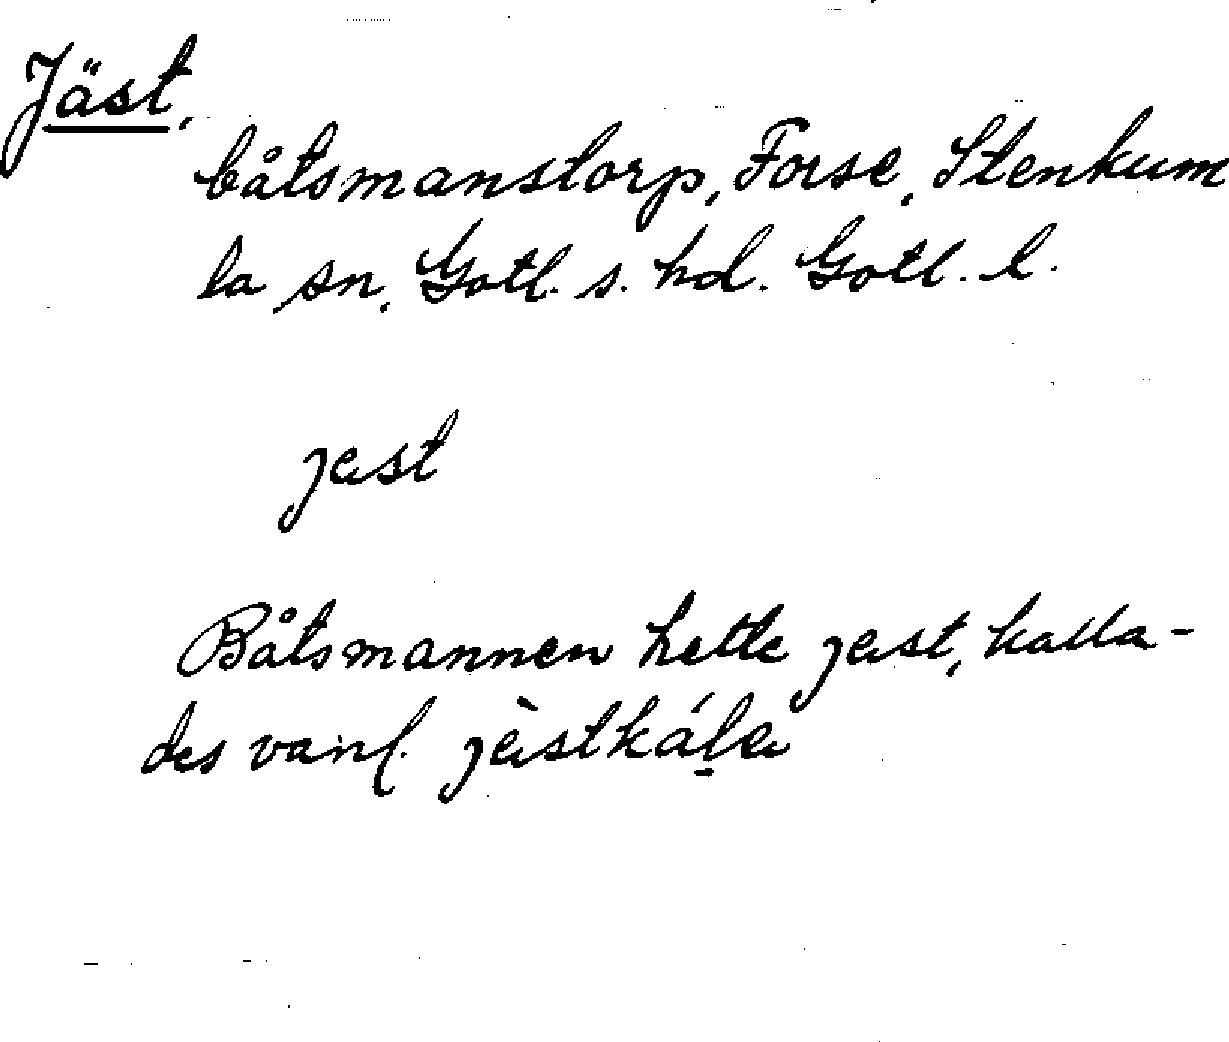 Jäst,
båtsmanstorp, Forse, Stenkum
la sn, Gotl. s. hd. Gotl. l.
jest
Båtsmannen hette jest, kalla-
des vanl. jèstkál̠a